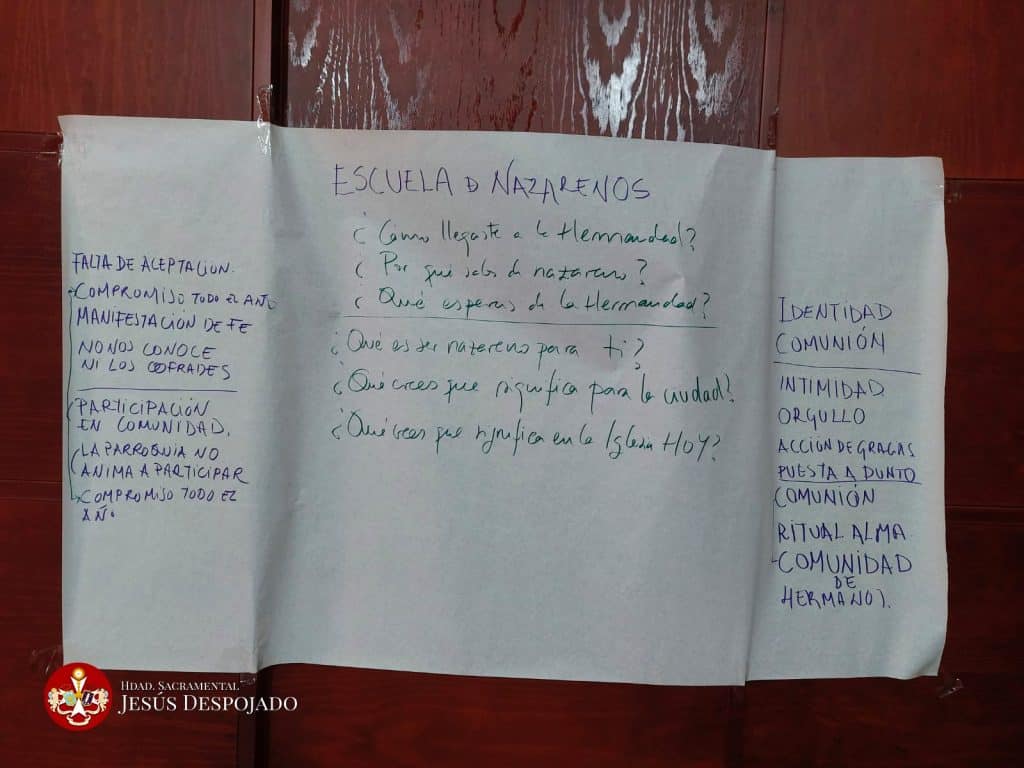 ESCUELA D NAZARENOS
¿Cómo llegaste a la Hermandad?
¿Por qué sales de nazareno?
¿Qué esperas de la Hermandad?
¿Qué es ser nazareno para ti?
¿Qué crees que significa para la ciudad?
¿Qué crees que significa en la Iglesia HOY?
FALTA DE ACEPTACIÓN.
COMPROMISO TODO EL AÑO
MANIFESTACIÓN DE FE
NO NOS CONOCE
NI LOS COFRADES
PARTICIPACIÓN
EN COMUNIDAD.
LA PARROQUIA NO
ANIMA A PARTICIPAR
COMPROMISO TODO EL
AÑO
IDENTIDAD
COMUNIÓN
INTIMIDAD
ORGULLO
ACCIÓN DE GRACIAS
PUESTA A PUNTO
COMUNIÓN
RITUAL ALMA
-COMUNIDAD
DE
HERMANOS.
HDAD. SACRAMENTAL
JESÚS DESPOJADO